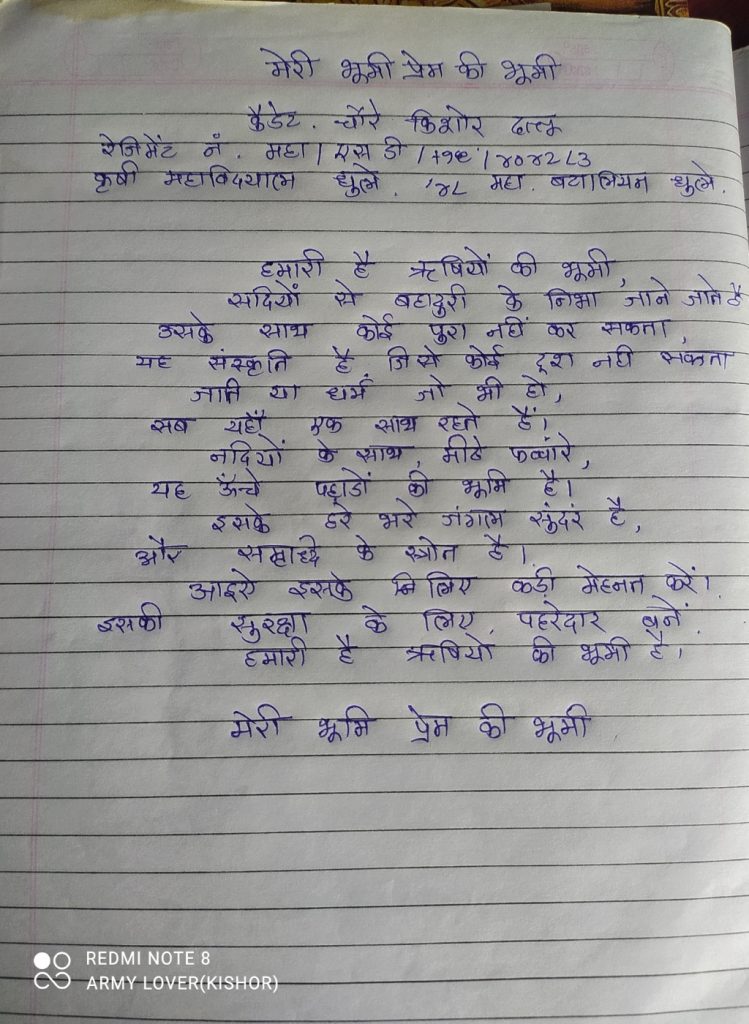 मेरी भूमी प्रेम की भूमी
कैडेट. चौरे किशोर दत्तू
रेजिमेंट नं. महा/एस डी /१९/४०४२८३
कृषी महाविदयालय धुले. ४८ महा. बटालियन धुले.
हमारी है ऋषियों की भूमी,
सदियों से बहादुरी के निभा जाने जाते है
उसके साथ कोई पुरा नहीं कर सकता,
यह संस्कृति है जिसे कोई टूश नही सकता
जाति या धर्म जो भी हो,
सब यहाँ एक साथ रहते हैं।
नदियों के साथ, मीठे फव्वारे,
यह ऊँन्चे पहाडों की भूमि है।
इसके हरे भरे जंगल सुंदर है,
और समृध्दि के स्त्रोत है।
आइऐ इसके लिए कडी मेहनत करें।
इसकी सुरक्षा के लिए पहरेदार बनें
हमारी है ऋषियो की भूमी है।
मेरी भूमि प्रेम की भूमी
REDMI NOTE 8
ARMY LOVER(KISHOR)